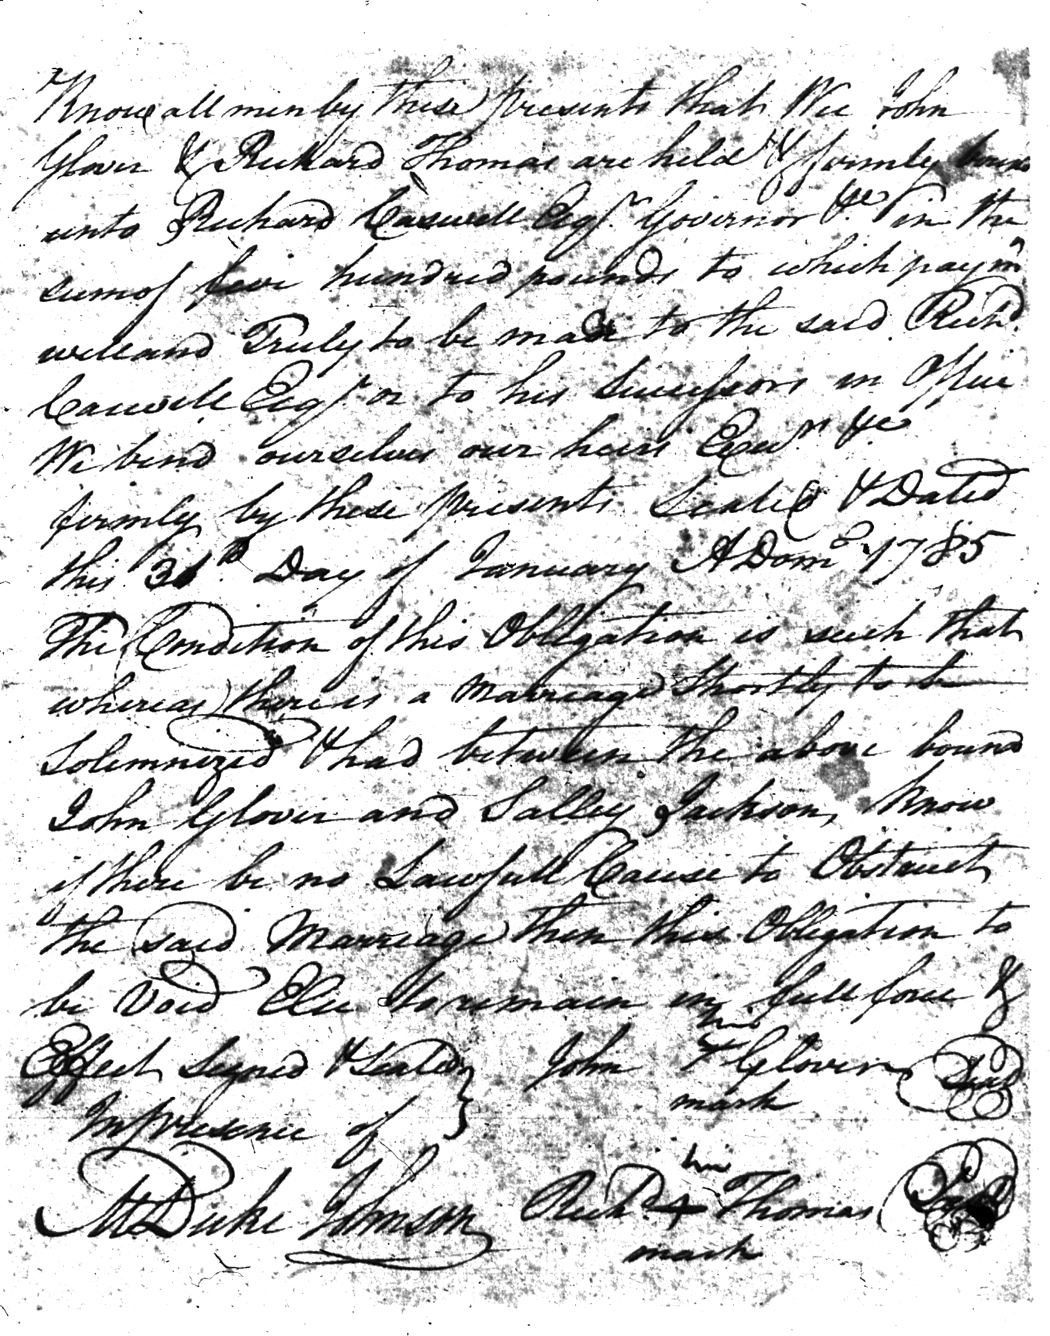 Know all men by these presents that Wee John
Glover & Richard Thomas are held & firmly boun
unto Richard Caswell Esqr. Governor &c in the
sum of five hundred pounds to which paymt
well and Truly to be made to the said Richd.
Caswell Esqr or to his Successors in Office
We bind ourselves our heirs Execrs &c
firmly by these presents Sealed & Dated
this 31st Day of January ADom 1785
The Condition of this Obligation is such that
whereas there is a Marriage Shortly to be
Solemnized & had between the above bound
John Glover and Salley Jackson, Know
if there be no Lawfull Cause to Obstruct
the said Marriage then this Obligation to
be Void Else to remain in full force &
Effect Signed & Sealed
In presence of
John his + Glover Seal
mark
McDuke Johnson
Richd. his + Thomas Seal
mark